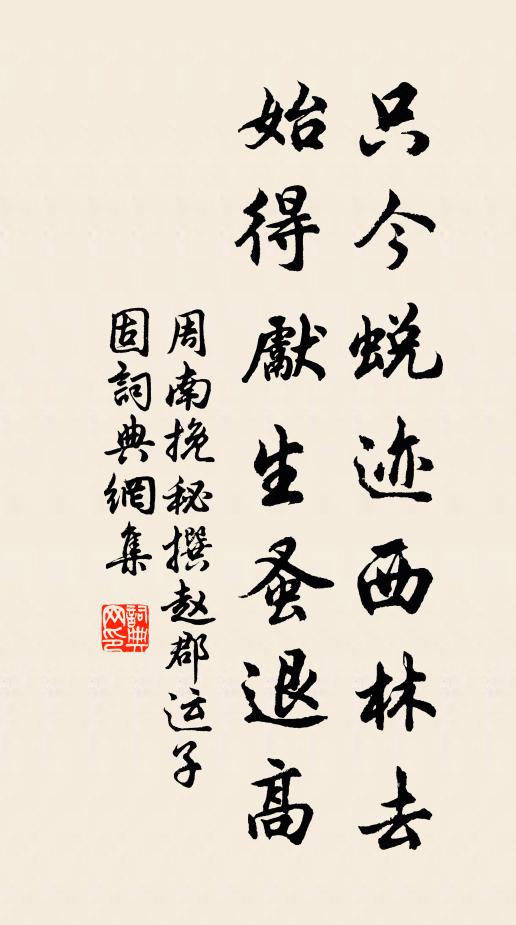 只今蜕迹西林去
始得獻生蚤退高
周南挽秘撰赵郡运子
固詞典網集
詞典网印